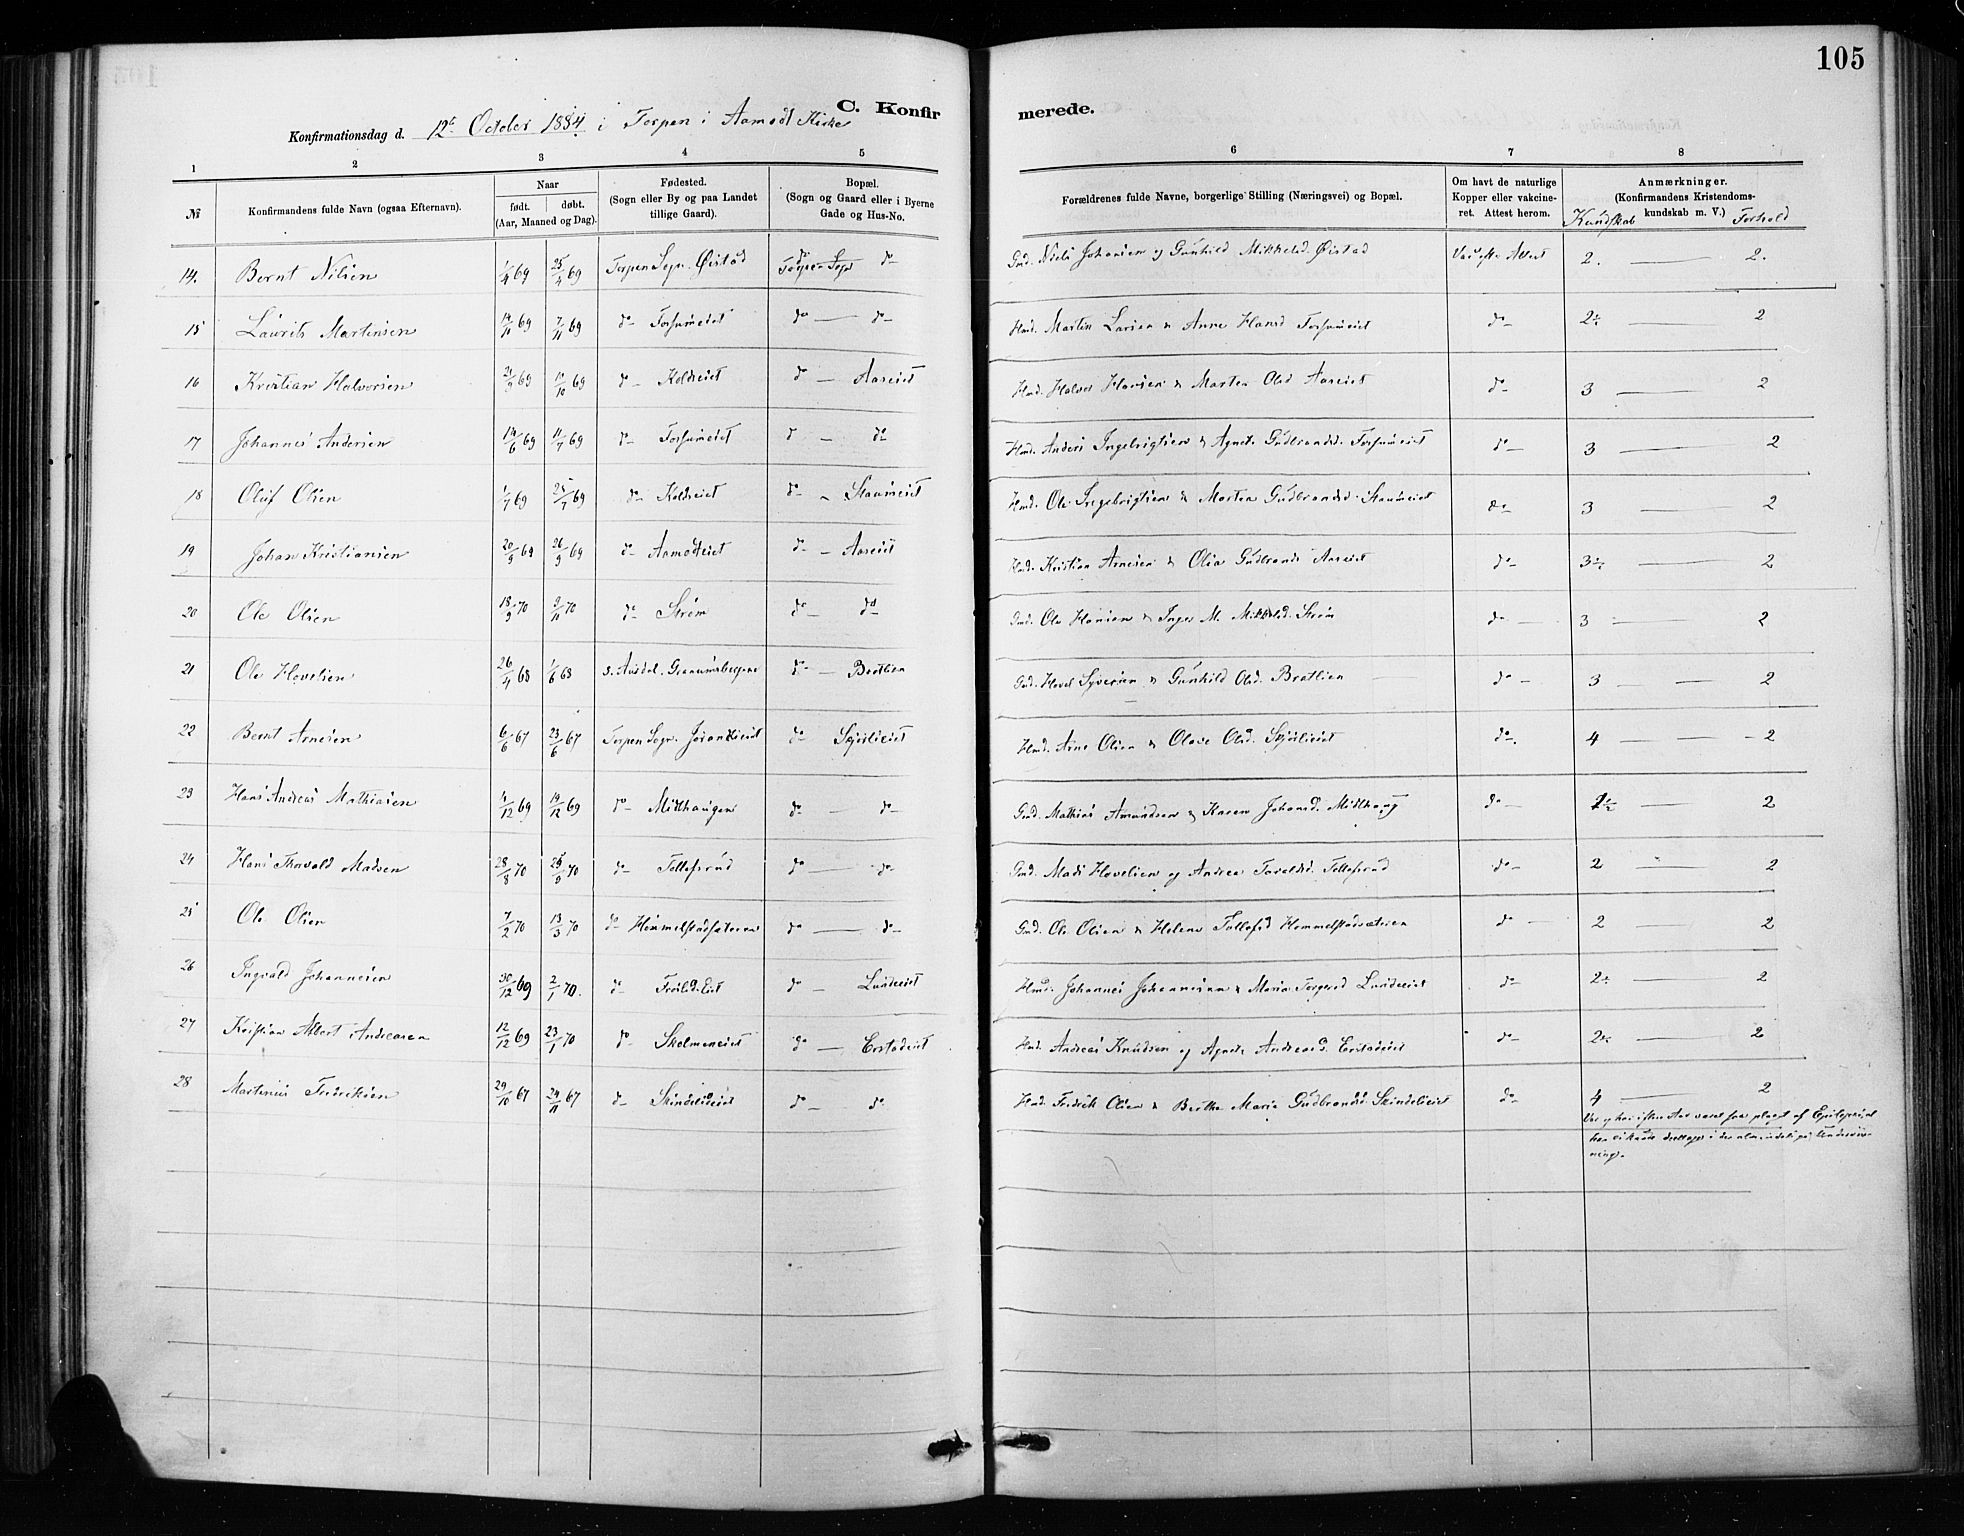 105
C. Konfir
merede.
Konfirmationsdag d. 12te October 1884 i Torpen i Aamodt Kirke
1 2 3 4 5 6 7 8
№ Konfirmandens fulde Navn (ogsaa Efternavn). Naar født. døbt. (Aar, Maaned og Dag). Fødested. (Sogn eller By og paa Landet tillige Gaard). Bopæl. (Sogn og Gaard eller i Byerne Gade og Hus-No. Forældrenes fulde Navne, borgerlige Stilling (Næringsvei) og Bopæl. Om havt de naturlige Kopper eller vakcineret. Attest herom. Anmærkninger. (Konfirmandens Kristendomskundskab m. V.) Kundskab Forhold
14. Bernt Nilsen 1/4 69 25/4 69 Torpen Sogn. Øistad do Torpen Sogn do Gmd. Niels Johansen og Gunhild Mikkelsd. Øistad Vac. efter Attest 2. 2.
15 Laurits Martinsen 14/10 69 7/11 69 do Forsumeiet do do Hmd. Martin Larsen & Anne Hansd Forsumeiet do 2 2
16 Kristian Halvorsen 21/9 69 10/10 69 do Koldseiet do Aaseiet Hmd. Halvor Hansen & Marten Olsd Aaseiet do 3 2
17 Johannes Andersen 14/6 69 11/7 69 do Forsumeiet do do Hmd. Anders Ingebrigtsen & Agnete Gudbrandsd. Forsumeiet do 3 2
18 Oluf Olsen 1/7 69 25/7 69 do Koldseiet do Staumeiet Hmd. Ole Ingebrigtsen & Martea Gudbrandsd. Staumeiet do 3 2
19 Johan Kristiansen 20/9 69 26/9 69 do Aamodteiet do Aaseiet Hmd. Kristian Arnesen & Olia Gudbrands Aaseiet do 3 2
20 Ole Olsen 18/9 70 9/11 70 do Strøm do do Gmd. Ole Hansen & Inger M. Mikkelsd. Strøm do 3 2
21 Ole Hovelsen 26/4 68 1/6 68 S. Ausdal. do Bratlien Gmd. Hovel Syversen & Gunhild Olsd. Bratlien do 3 2
22 Bernt Arnesen 6/6 67 23/6 67 Torpen Sogn. do Hmd. Arne Olsen & Olave Olsd. do 4 2
23 Hans Andreas Mathiasen 4/12 69 19/12 69 do Midthaugen do do Gmd. Mathias Amundsen & Karen Johansd. Midthaug do 2
24 Hans Thorvald Madsen 28/8 70 25/9 70 do Tollefsrud do do Gmd. Mads Hovelsen og Andrea Tollefsrud do 2 2
25 Ole Olsen 7/2 70 13/3 70 do Hommelstadsæteren do do Gmd. Ole Olsen & Helene Tollefsd Hommelstadsæteren do 2 2
26 Ingvald Johannesen 30/12 69 2/1 70. do do Lundeeiet Hmd. Johannes Johannesen & Maria Torgersd Lundeeiet do 2 2
27 Kristian Albert Andreasen 12/12 69 23/1 70 do Skolmeneiet do Erstadeiet Hmd. Andreas Knudsen og Agnete Andreasd. Erstadeiet do 2 2
28 Martinius Fredriksen 29/10 67 24/11 67 do Skindelieiet do do Hmd. Fredrik Olsen & Berthe Maria Gudbrandsd. Skindelieiet do 4 2
har været plaget af Epilepsi,
har ei kunnet deeltage i den almindelige Undervis-
ning.